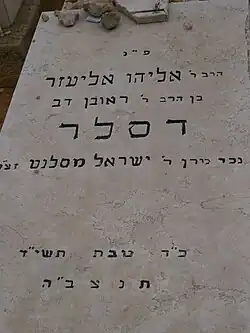 פ"נ
הרב ר' אליהו אליעזר
בן הרב ר' ראובן דב
דסלר
נכד מרן ר' ישראל מסלנט זצ"ל
כ"ד טבת תשי"ד
ת נ צ ב" ה